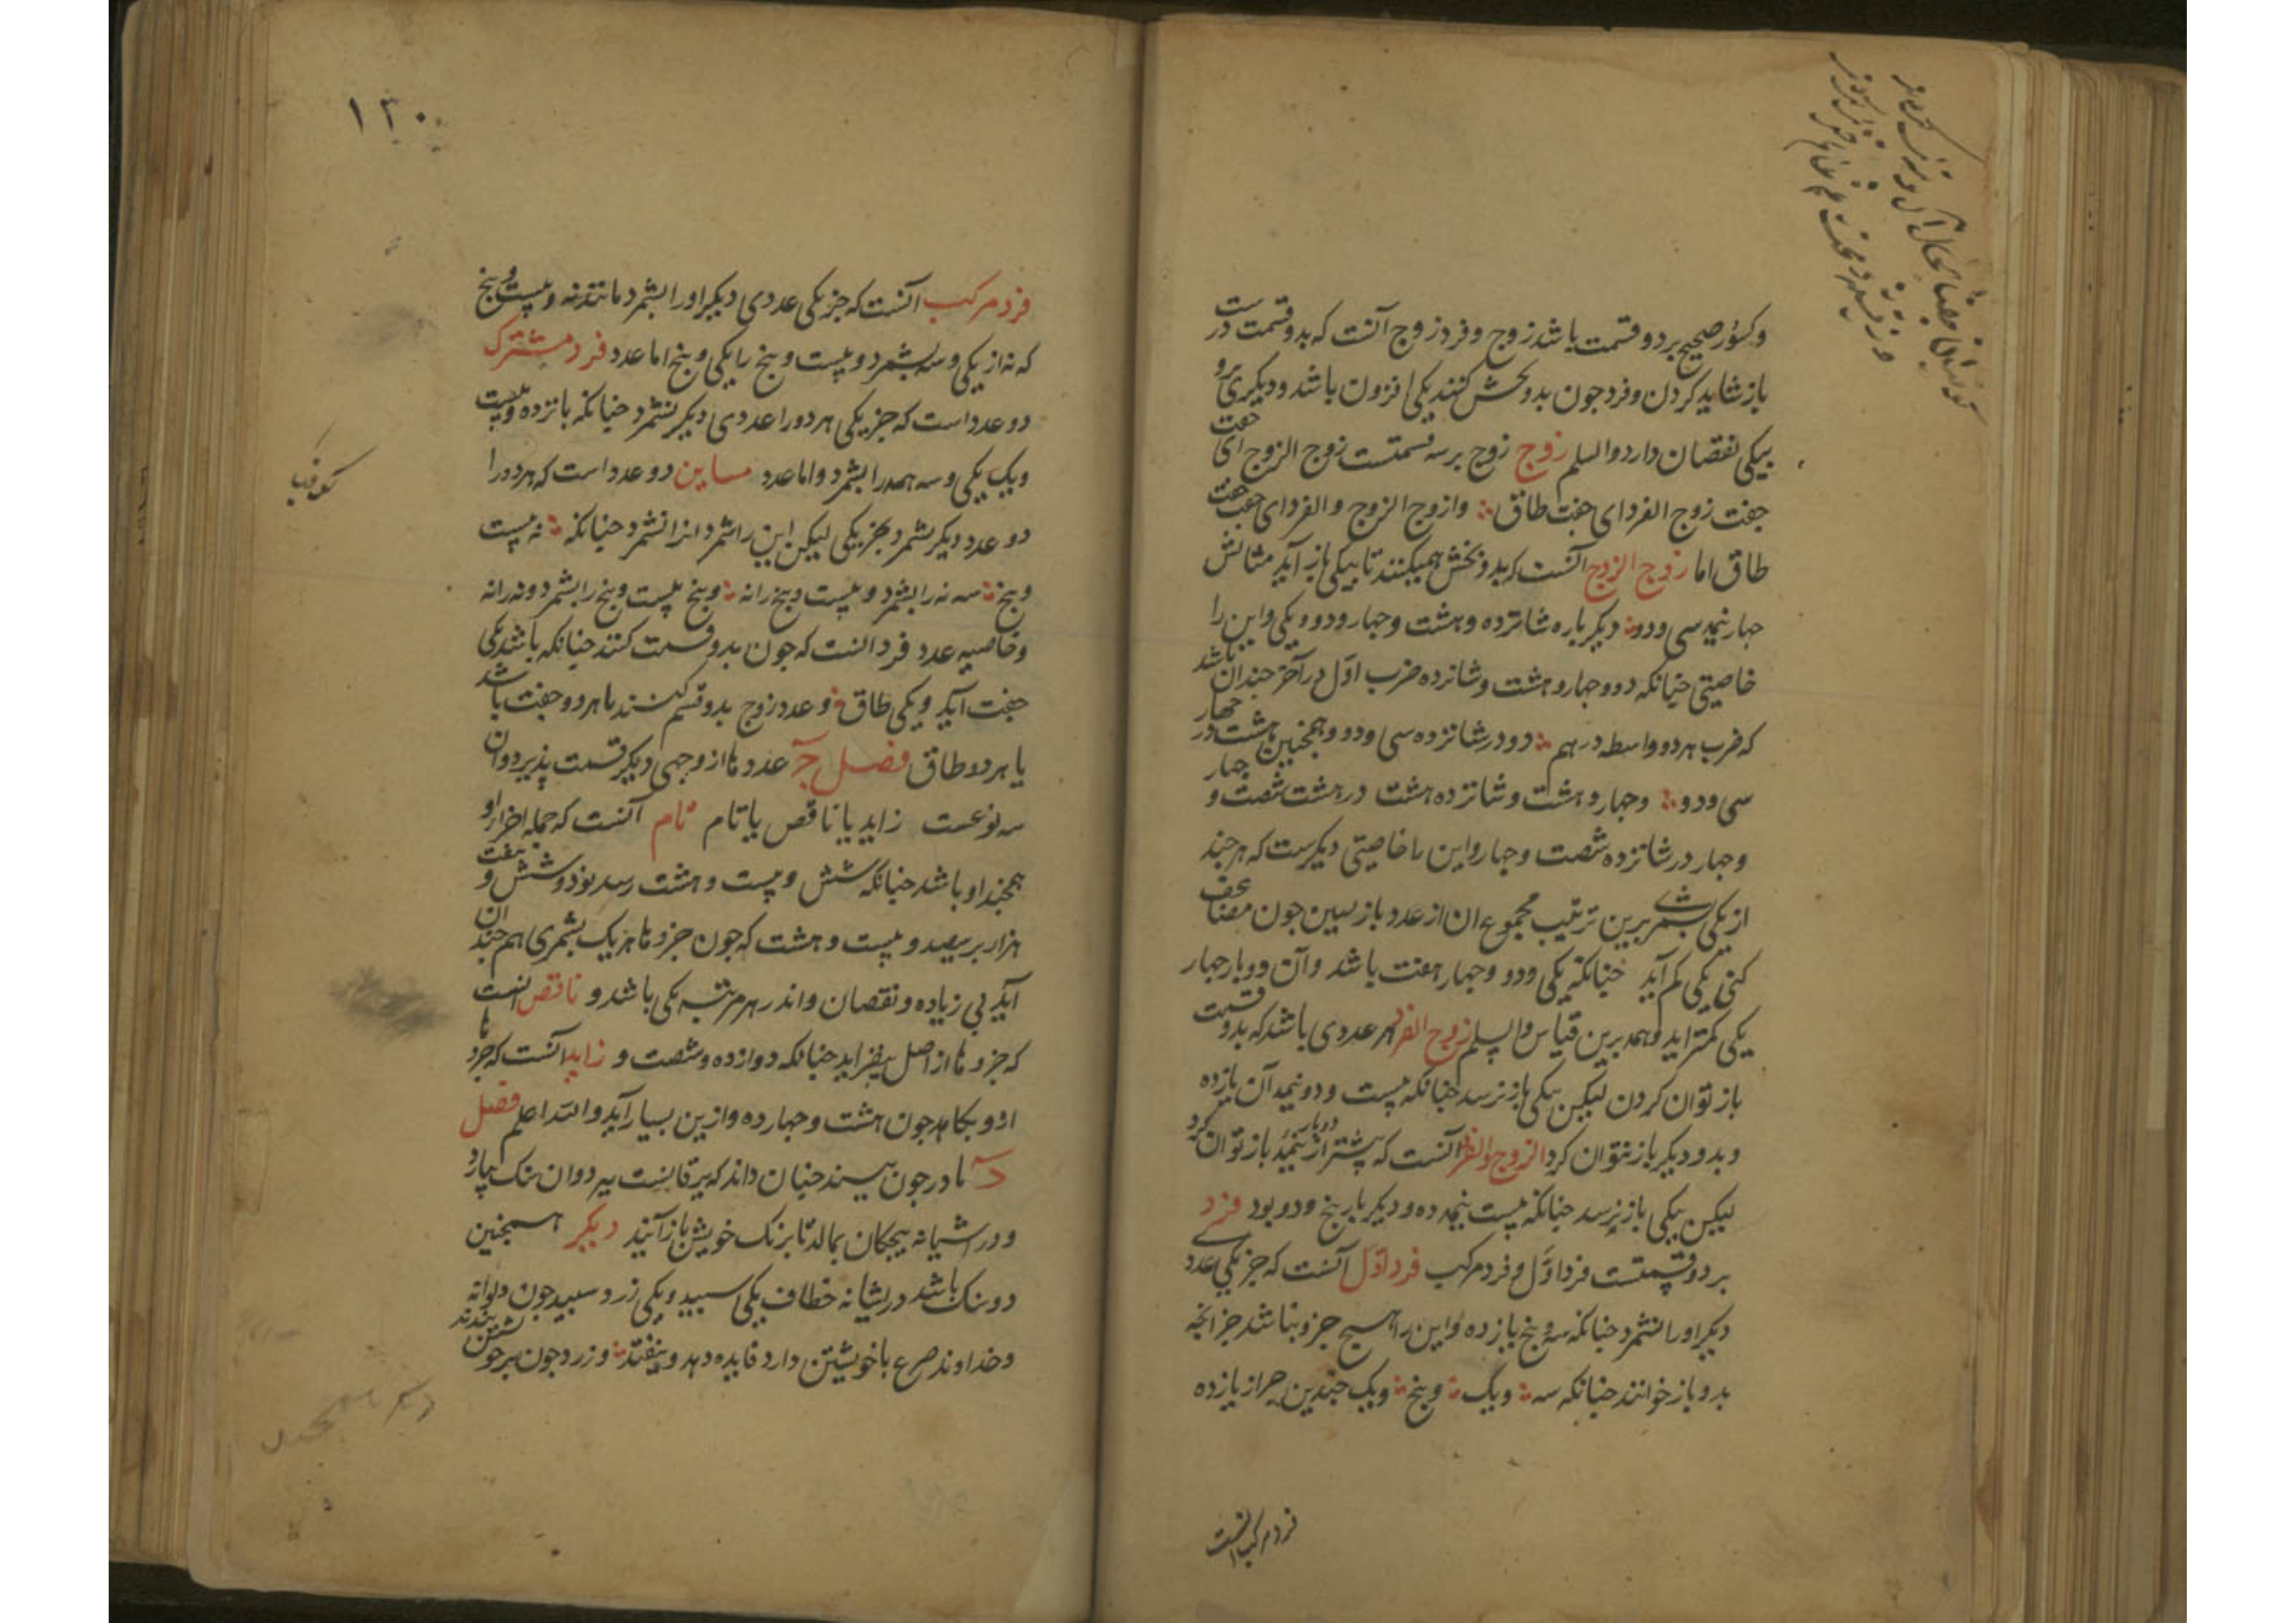 وکسور صحیح بر دو قسمت باشد زوج و فرد زوج آنست که بدو قسمت درست
باز شاید کردن و فرد جون بدو بخش کنند یکی افزون باشد و دیگری برو
بیکی نقصان دارد والسلم زوج زوج بر سه قسمتست زوج الزوج ای جفت
جفت زوج الفرد ای جفت طاق وازوج الزوج والفرد ای جفت جفت
طاق اما زوج الزوج آنست که بدو بخش همیکنند تا بیکی باز آید مثالش
جهار نیمه سی ودو دیکر باره شانزده وهشت وجهار ودو ویکی واین را
خاصیتی جنانکه دو وجهار وهشت وشانزده ضرب اول در آخر جندان باشد
که ضرب هر دو واسطه درهم دو در شانزده سی ودو وهمجنین هشت در جهار
سی ودو وجهار وهشت وشانزده هشت در هشت شصت و جهار
وجهار در شانزده شصت وجهار واین را خاصیتی دیکرست که هر جند
از یکی بشمری برین ترتیب مجموع ان از عدد بازبسین جون مضاعف
کنی یکی کم آید جنانکه یکی ودو وجهار هفت باشد وآن دو بار جهار
یکی کمتر اید وهمه برین قیاس والسلم زوج الفرد هر عددی باشد که بدو قسمت
باز توان کردن لیکن بیکی باز نرسد جنانکه بیست ودو نیمه آن یازده
وبدو دیکر باز نتوان کرد الزوج والفرد آنست که بیشتر از دو بار نیمه باز توان کرد
لیکن بیکی باز نرسد جنانکه بیست نیمه ده ودیکر بار بنج ودو بود فرد
بر دو قسمتست فرد اول وفرد مرکب فرد اول آنست که جز یکی عدد
دیکر اورا نشمرد جنانکه سه وبنج یازده واین را هیچ جزو نباشد جز انجه
بدو باز خوانند جنانکه سه ویک وبنج ویک جندین جر از یازده
فرد مرکب انست
۱۳۰
فرد مرکب آنست که جز یکی عددی دیکر اورا بشمرد مانند نه وبیست وبنج
که نه از یکی وسه بشمرد وبیست وبنج را یکی وبنج اما عدد فرد مشترک
دو عدد است که جز یکی هر دورا عددی دیکر بشمرد جنانکه بانزده وبیست
ویک یکی وسه همه را بشمرد واما عدد مباین دو عدد است که هر دورا
دو عدد دیکر بشمرد بجز یکی لیکن این را شمرد انرا نشمرد جنانکه نه بیست
وبنج سه نه را بشمرد وبیست وبنج را نه وبنج بیست وبنج را بشمرد ونه را نه
وخاصیه عدد فرد انست که جون بدو قسمت کنند جنانکه باشد یکی
جفت آید ویکی طاق وعدد زوج بدو قسم کنند یا هر دو جفت باشد
یا هر دو طاق فصل ج عددها از وجهی دیکر قسمت پذیرد وان
سه نوعست زاید یا ناقص یا تام تام آنست که جمله اجزاء او
همجند او باشد جنانکه شش وبیست وهشت رسد نود وشش و هفت
هزار بر سیصد وبیست وهشت که جون جزوها هر یک بشمری هم جندان
آید بی زیاده ونقصان واندر هر مرتبه یکی باشد و ناقص انست
که جزوها از اصل بیفزاید جنانکه دوازده وشصت و زاید آنست که جزوها
ازو بکاهد جون هشت وجهارده وازین بسیار آید والله اعلم فصل
د مادر جون بیند جنان داند که یرقانست ببرد وان سنک بیارد
ودر اشیانه بیجکان بمالد تا برنک خویش باز آیند دیکر همجنین
دو سنک باشد در اشیانه خطاف یکی اسبید ویکی زرد سبید جون دیوانه بندند
وخداوند صرع با خویشتن دارد فایده دهد وبیفتد وزرد جون بر خویشتن